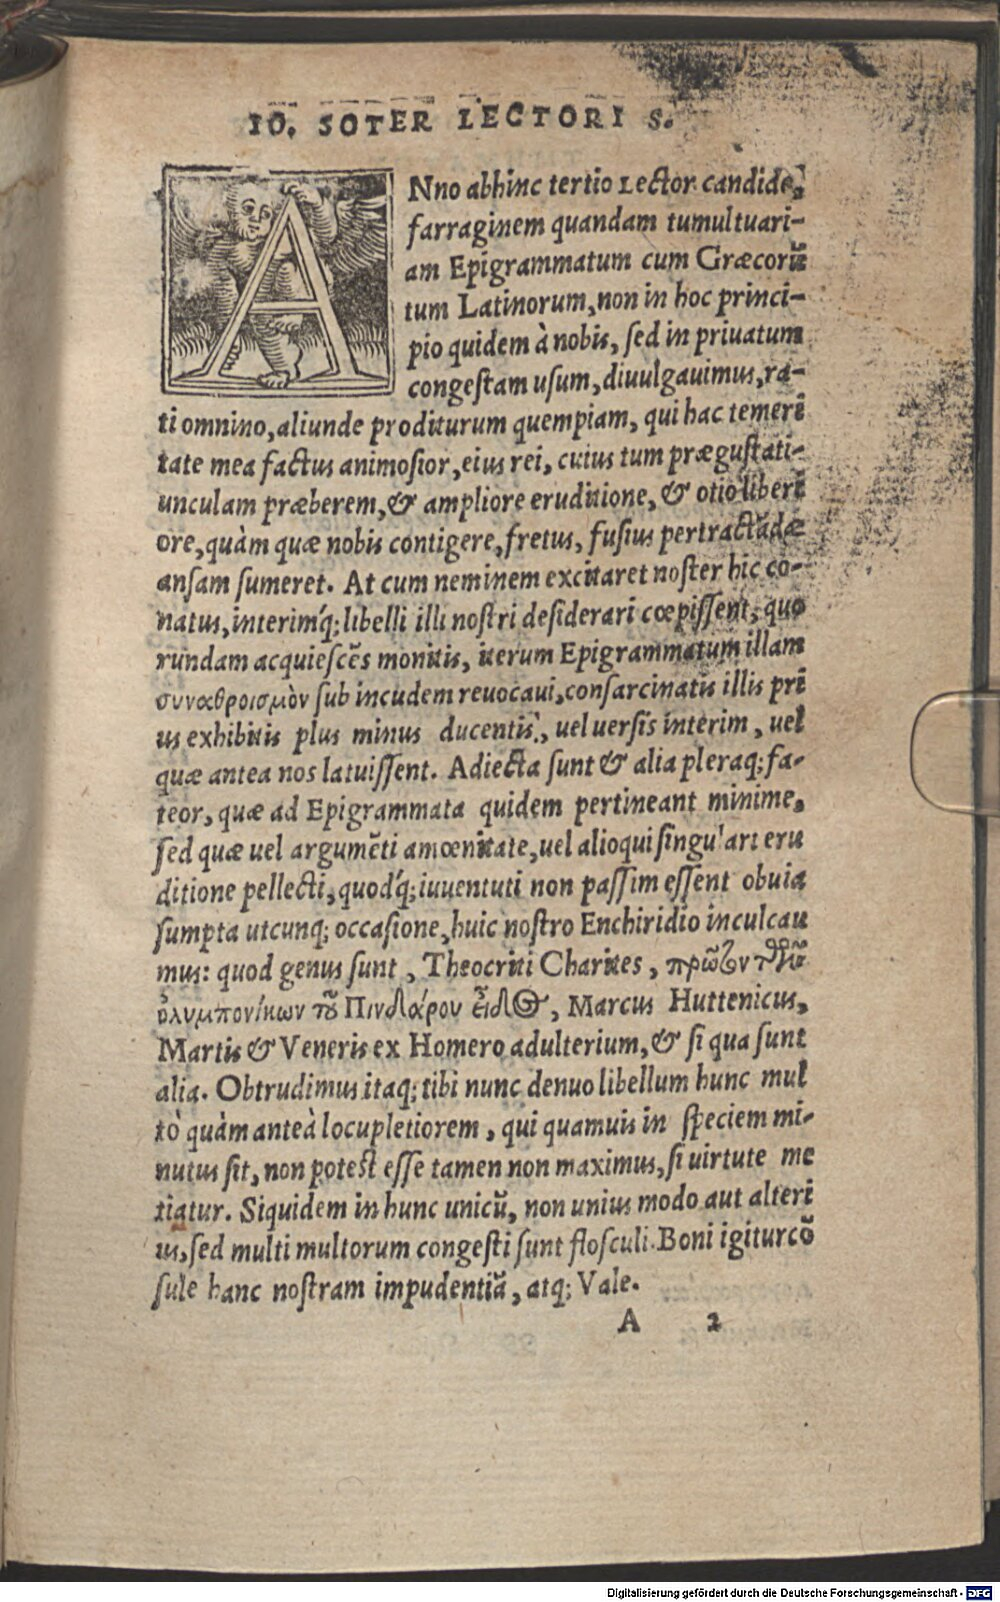 IO. SOTER LECTORI S.
ANno abhinc tertio Lector candide,
farraginem quandam tumultuari-
am Epigrammatum cum Græcorũ
tum Latinorum, non in hoc princi-
pio quidem à nobis, sed in priuatum
congestam usum, diuulgauimus, ra-
ti omnino, aliunde proditurum quempiam, qui hac temeri
tate mea factus animosior, eius rei, cuius tum prægustati-
unculam præberem, & ampliore eruditione, & otio liberi
ore, quàm quæ nobis contigere, fretus, fusius pertractãdæ
ansam sumeret. At cum neminem excitaret noster hic co-
natus, interimq́; libelli illi nostri desiderari cœpissent, quo
rundam acquiescẽs monitis, iterum Epigrammatum illam
συναθροισμὸν sub incudem reuocaui, consarcinatis illis pri
us exhibitis plus minus ducentis., uel uersis interim, uel
quæ antea nos latuissent. Adiecta sunt & alia pleraq; fa-
teor, quæ ad Epigrammata quidem pertineant minime,
sed quæ uel argumẽti amœnitate, uel alioqui singulari eru
ditione pellecti, quodq́; iuuentuti non passim essent obuia
sumpta utcunq; occasione, huic nostro Enchiridio inculcau
mus: quod genus sunt, Theocriti Charites, πρῶτον τῶν
ὀλυμπονίκων τοῦ Πινδάρου εἶδος, Marcus Huttenicus,
Martis & Veneris ex Homero adulterium, & si qua sunt
alia. Obtrudimus itaq; tibi nunc denuo libellum hunc mul
tò quàm anteà locupletiorem, qui quamuis in speciem mi-
nutus sit, non potest esse tamen non maximus, si uirtute me
tiatur. Siquidem in hunc unicũ, non unius modo aut alteri
us, sed multi multorum congesti sunt flosculi. Boni igitur cõ
sule hanc nostram impudentiã, atq; Vale.
A 2
Digitalisierung gefördert durch die Deutsche Forschungsgemeinschaft - DFG